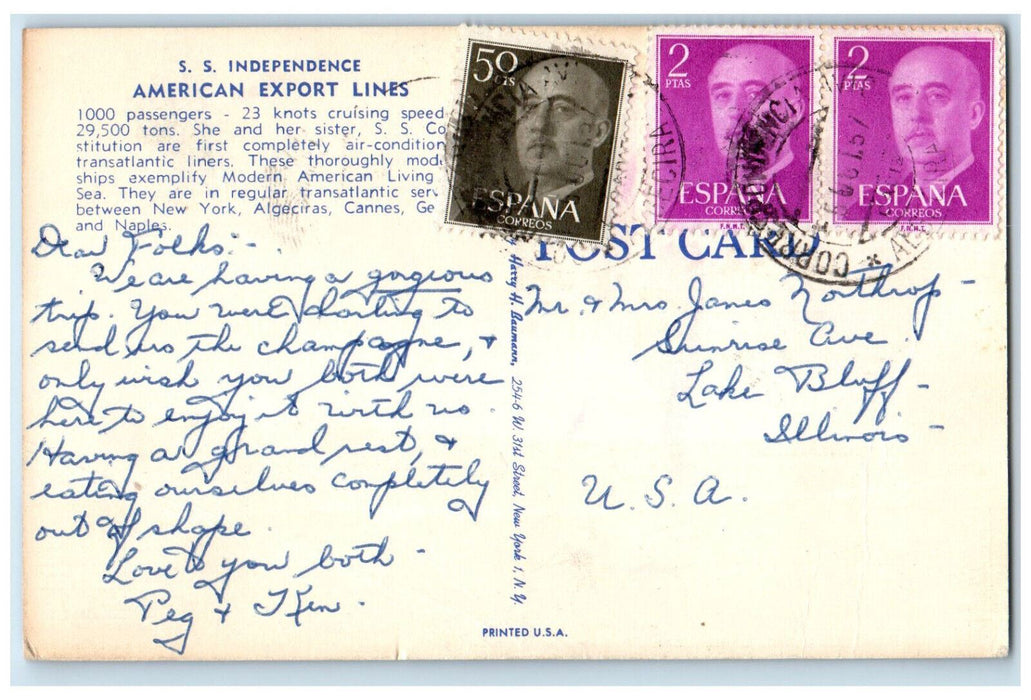 S. S. INDEPENDENCE
AMERICAN EXPORT LINES
1000 passengers - 23 knots cruising speed
29,500 tons. She and her sister, S. S. Co
stitution are first completely air-condition
transatlantic liners. These thoroughly mod
ships exemplify Modern American Living
Sea. They are in regular transatlantic ser
between New York, Algeciras, Cannes, Ge
and Naples.
50 CTS
ESPAÑA
CORREOS
2 PTAS
ESPAÑA
CORREOS
F.N.M.T.
2 PTAS
ESPAÑA
CORREOS
F.N.M.T.
POST CARD
Dear Folks:-
We are having a gorgeous
trip. You were darling to
send us the champagne, +
only wish you both were
here to enjoy it with us.
Having a grand rest, +
eating ourselves completely
out of shape.
Love to you both -
Peg + Ken.
Harry H. Baumann, 254-6 W. 31st Street, New York 1, N. Y.
Mr. + Mrs. James Northrop -
Sunrise Ave.
Lake Bluff -
Illinois -
U. S. A.
PRINTED U.S.A.